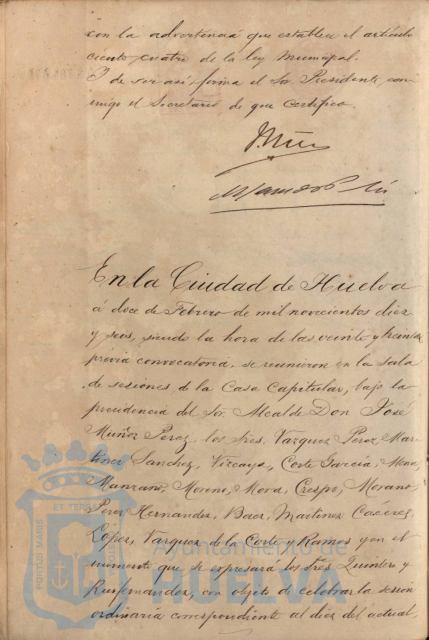 con la advertencia que establece el artículo
ciento cuatro de la ley Municipal.
Y de ser así firma el Sr. Presidente con-
migo el Secretario de que certifico.
En la Ciudad de Huelva
á doce de Febrero de mil novecientos diez
y seis, siendo la hora de las veinte y treinta
previa convocatoria, se reunieron en la sala
de sesiones de la Casa Capitular, bajo la
presidencia del Sr. Alcalde Don José
Muñoz Perez, los Sres. Vazquez Perez, Mar-
tinez Sanchez, Vizcaya, Corte Garcia, Mora,
Manzano, Moreno, Mora, Crespo, Morano,
Perez Hernandez, Baez, Martinez Cáceres,
Lopez, Vazquez de la Corte y Ramos y en el
momento que se expresará los Sres Quintero y
con objeto de celebrar la sesión
ordinaria correspondiente al diez del actual,
Ayuntamiento de
HUELVA
PORTUS MARIS
ET TERRAE